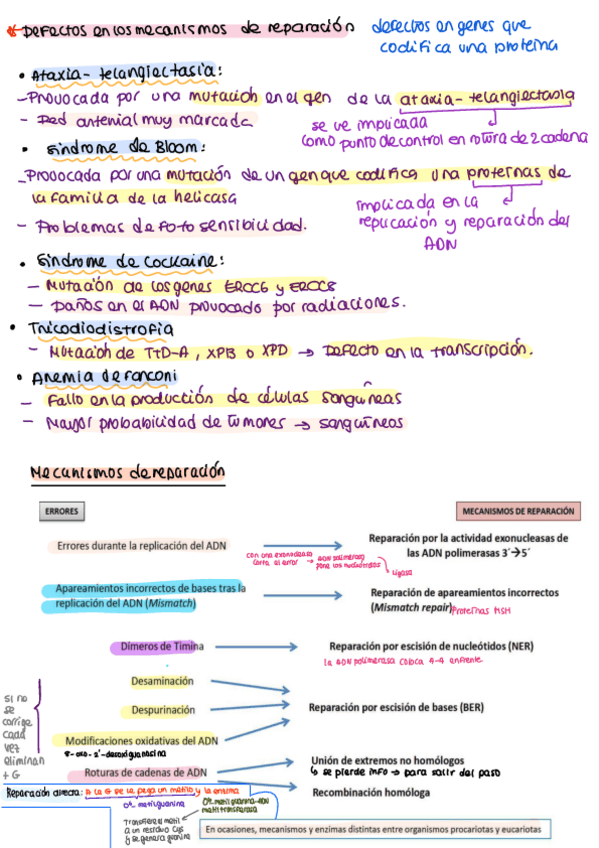 * Defectos en los mecanismos de reparación
defectos en genes que
codifica una proteína
• Ataxia-telangiectasia:
– Provocada por una mutación en el gen de la ataxia-telangiectasia
– Red arterial muy marcada
se ve implicada
como punto de control en rotura de 2 cadena
• Síndrome de Bloom:
– Provocada por una mutación de un gen que codifica una proteínas de
la familia de la helicasa
– Problemas de foto sensibilidad.
implicada en la
replicación y reparación del
ADN
• Síndrome de Cockaine:
– Mutación de los genes ERCC6 y ERCC8
– Daños en el ADN provocado por radiaciones.
• Tricodiodistrofia
– Mutación de TTD-A, XPB o XPD → Defecto en la transcripción.
• Anemia de fanconi
– Fallo en la producción de células sanguíneas
– Mayor probabilidad de tumores → sanguíneos
Mecanismos de reparación
ERRORES
MECANISMOS DE REPARACIÓN
Errores durante la replicación del ADN
con una exonucleasa
corta el error → ADN polimerasa
pone los nucleótidos
ligasa
Reparación por la actividad exonucleasas de
las ADN polimerasas 3´→5´
Apareamientos incorrectos de bases tras la
replicación del ADN (Mismatch)
Reparación de apareamientos incorrectos
(Mismatch repair) Proteínas MSH
Dimeros de Timina
Reparación por escisión de nucleótidos (NER)
la ADN polimerasa coloca A-A enfrente
Desaminación
Despurinación
Reparación por escisión de bases (BER)
Modificaciones oxidativas del ADN
8-oxo-2'-desoxiguanosina
si no
se
corrige
cada
vez
eliminan
+ G
Roturas de cadenas de ADN
Unión de extremos no homólogos
↳ se pierde info → para salir del paso
Recombinación homóloga
Reparación directa: A la G se le pega un metilo y la enzima
O⁶ metilguanina
O⁶ metilguanina-ADN
metiltransferasa
Transfiere el metil
a un residuo Cys
y se genera guanina
En ocasiones, mecanismos y enzimas distintas entre organismos procariotas y eucariotas